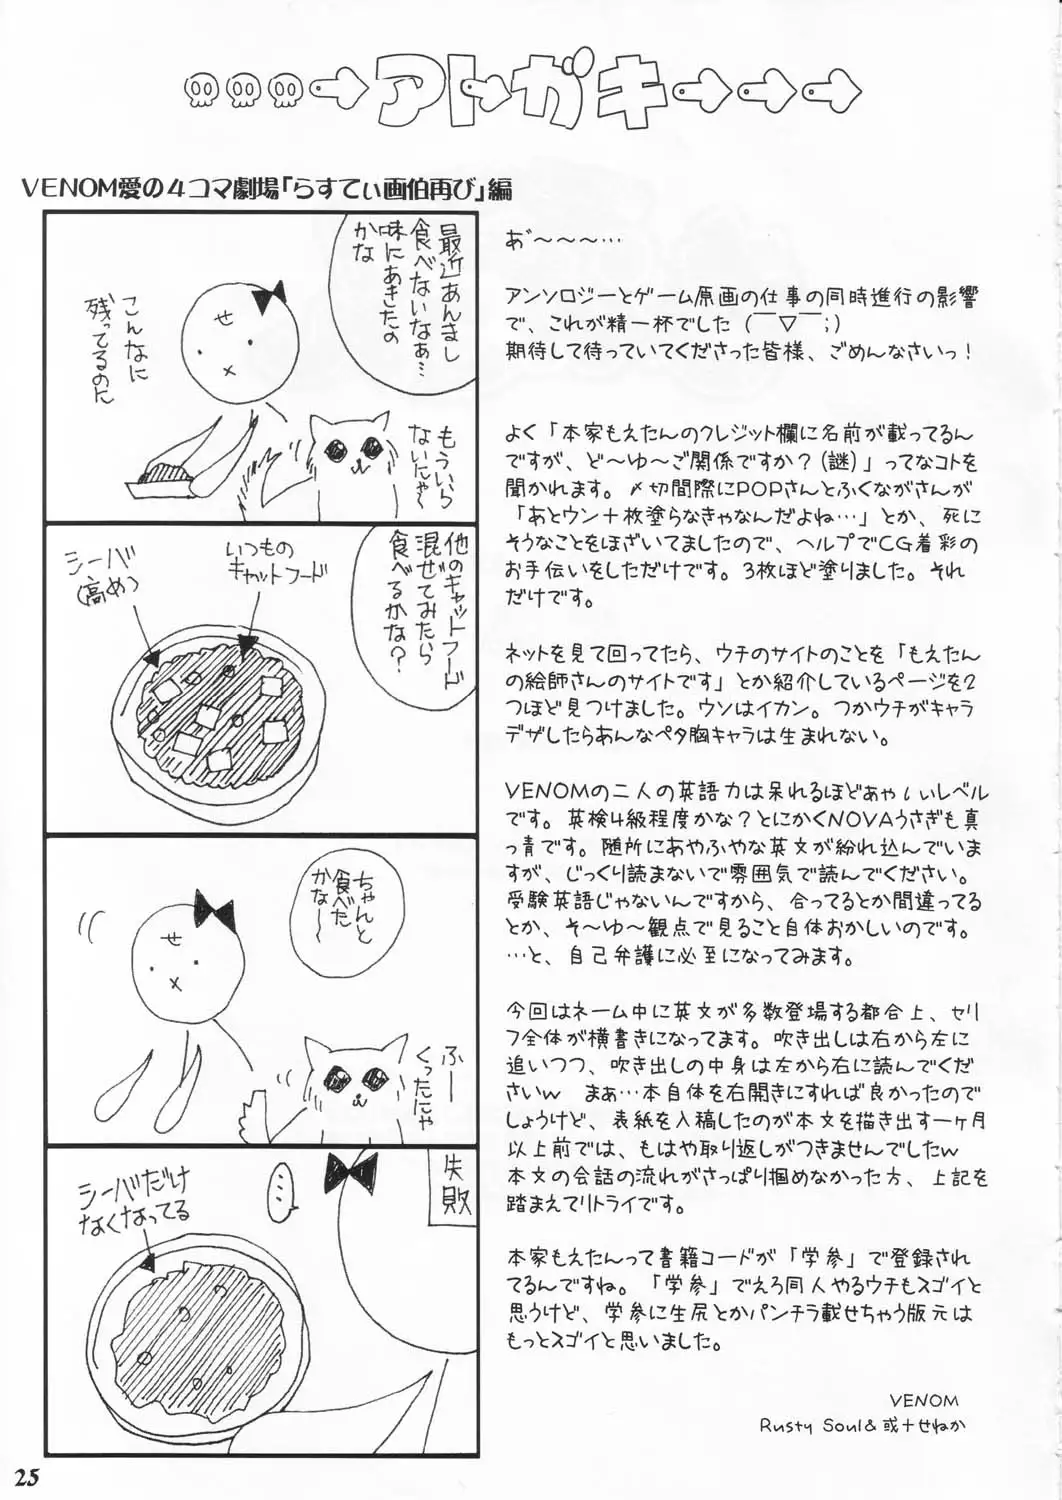 アトガキ
VENOM愛の4コマ劇場「らすてぃ画伯再び」編
最近あんまし
食べないなぁ…
味にあきたの
かな
せ
こんなに
残ってるのに
もういら
ないにゃ〜
他のキャットフード
混ぜてみたら
食べるかな？
いつもの
キャットフード
シーバ
(高め)
ちゃんと
食べた
かな〜
せ
ふー
くったにゃ
失敗
…
シーバだけ
なくなってる
あ゛〜〜〜…
アンソロジーとゲーム原画の仕事の同時進行の影響
で、これが精一杯でした(￣▽￣;)
期待して待っていてくださった皆様、ごめんなさいっ！
よく「本家もえたんのクレジット欄に名前が載ってるん
ですが、ど〜ゆ〜ご関係ですか？(謎)」ってなコトを
聞かれます。〆切間際にPOPさんとふくながさんが
「あとウン十枚塗らなきゃなんだよね…」とか、死に
そうなことをほざいてましたので、ヘルプでCG着彩の
お手伝いをしただけです。3枚ほど塗りました。それ
だけです。
ネットを見て回ってたら、ウチのサイトのことを「もえたん
の絵師さんのサイトです」とか紹介しているページを2
つほど見つけました。ウソはイカン。つかウチがキャラ
デザしたらあんなペタ胸キャラは生まれない。
VENOMの二人の英語力は呆れるほどあゃιぃレベル
です。英検4級程度かな？とにかくNOVAうさぎも真
っ青です。随所にあやふやな英文が紛れ込んでいま
すが、じっくり読まないで雰囲気で読んでください。
受験英語じゃないんですから、合ってるとか間違ってる
とか、そ〜ゆ〜観点で見ること自体おかしいのです。
…と、自己弁護に必至になってみます。
今回はネーム中に英文が多数登場する都合上、セリ
フ全体が横書きになってます。吹き出しは右から左に
追いつつ、吹き出しの中身は左から右に読んでくだ
さいw　まぁ…本自体を右開きにすれば良かったので
しょうけど、表紙を入稿したのが本文を描き出す一ヶ月
以上前では、もはや取り返しがつきませんでしたw
本文の会話の流れがさっぱり掴めなかった方、上記を
踏まえてリトライです。
本家もえたんって書籍コードが「学参」で登録され
てるんですね。「学参」でえろ同人やるウチもスゴイと
思うけど、学参に生尻とかパンチラ載せちゃう版元は
もっとスゴイと思いました。
VENOM
Rusty Soul&或十せねか
25